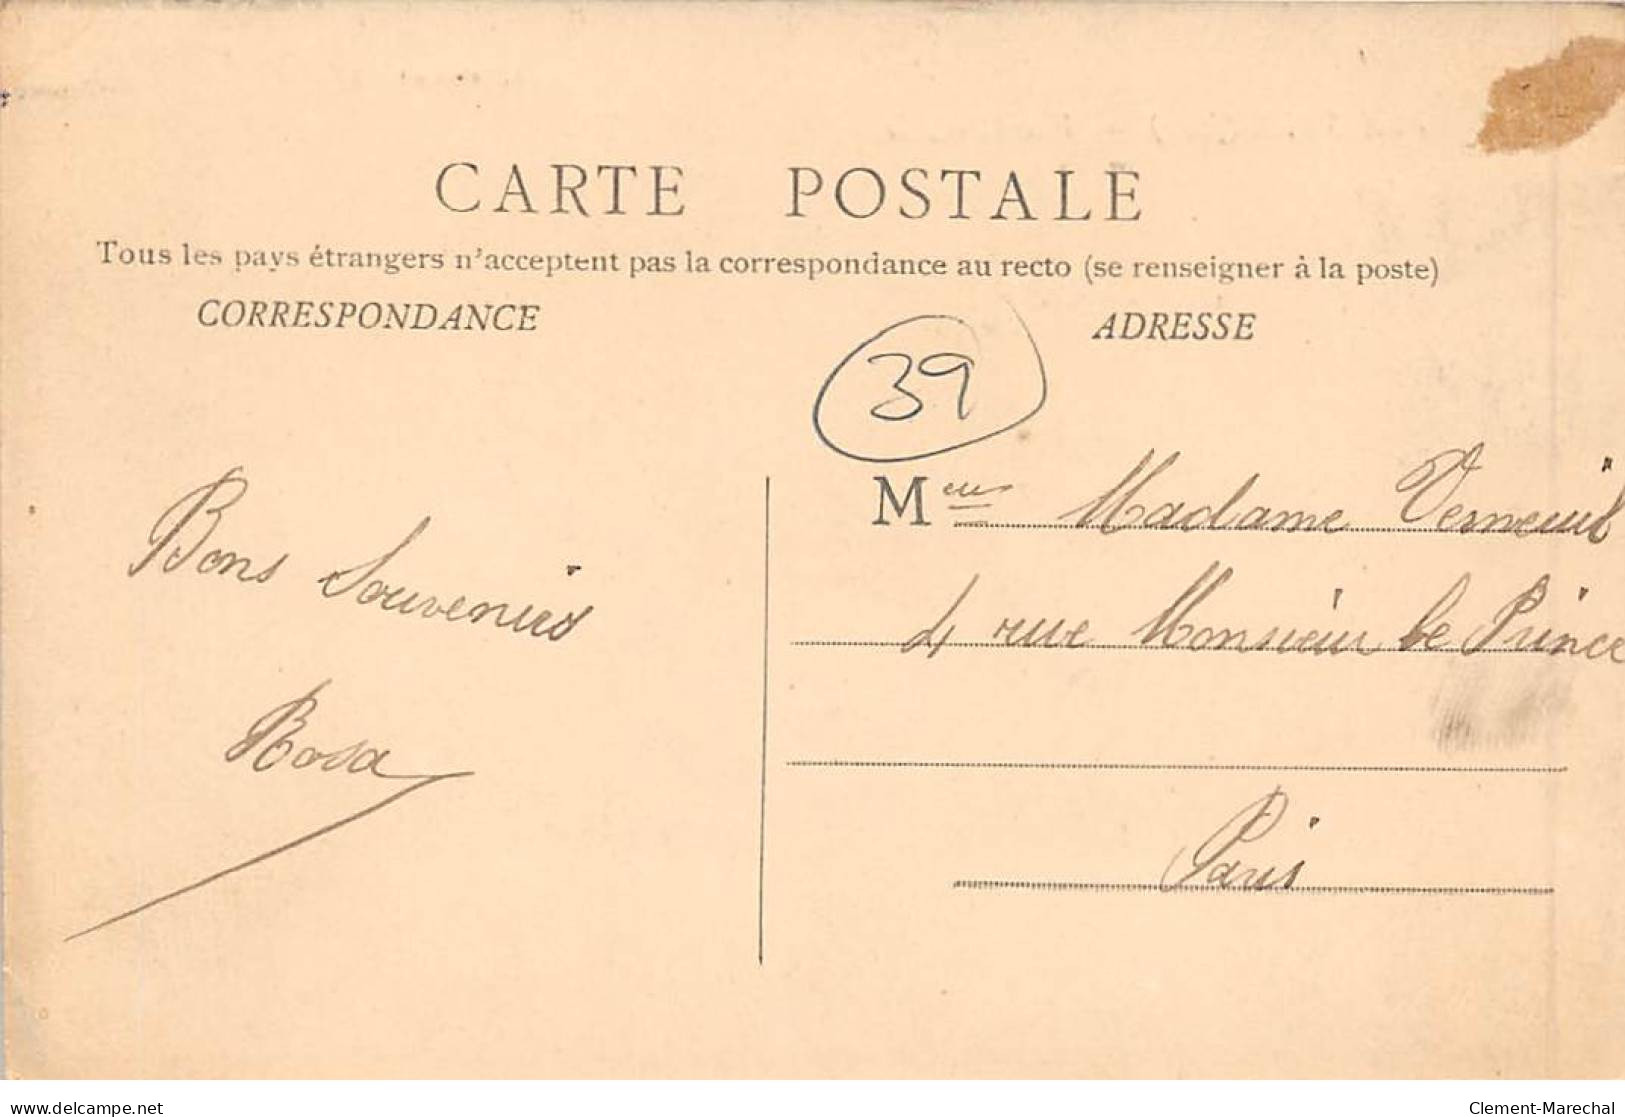 CARTE POSTALE
Tous les pays étrangers n'acceptent pas la correspondance au recto (se renseigner à la poste)
CORRESPONDANCE
ADRESSE
39
Bons Souvenirs
Rosa
M Madame Verneuil
4 rue Monsieur le Prince
Paris
delcampe.net
Clement-Marechal